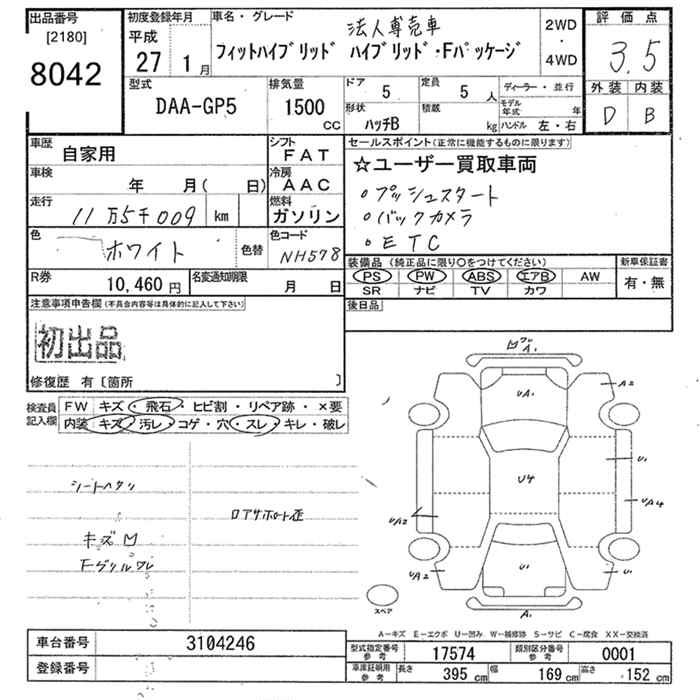 出品番号
[2180]
8042
初度登録年月
平成
27 1月
車名・グレード
法人専売車
フィットハイブリッド ハイブリッド・Fパッケージ
2WD
・
4WD
評価点
3.5
外装 内装
D B
型式
DAA-GP5
排気量
1500
CC
ドア
5
定員
5 人
ディーラー・並行
形状
ハッチB
積載
kg
モデル年式 年
ハンドル 左・右
車歴
自家用
シフト
FAT
車検
年 月( 日)
冷房
AAC
走行
11万5千009 km
燃料
ガソリン
色
ホワイト
色替
色コード
NH578
R券
10,460円
名変通知期限
月 日
セールスポイント(正常に機能するものに限ります)
☆ユーザー買取車両
○プッシュスタート
○バックカメラ
○ETC
装備品(純正品に限り○をつけてください)
PS PW ABS エアB AW
SR ナビ TV カワ
新車保証書
有・無
後日品
注意事項申告欄(不具合内容等は具体的に記入して下さい)
初出品
修復歴 有〔箇所 〕
検査員記入欄
FW キズ・飛石・ヒビ割・リペア跡・×要
内装 キズ・汚レ・コゲ・穴・スレ・キレ・破レ
シートヘタリ
キズ凹
Fグリルワレ
ロアサポート歪
凹ワレ
A1
UA1
A2
U1
U4
UA4
UA2
UA2
U1
U1
A1
スペア
A-キズ E-エクボ U-凹み W-補修跡 S-サビ C-腐食 XX-交換済
車台番号
3104246
登録番号
型式指定番号 参考
17574
類別区分番号 参考
0001
車庫証明用 参考
長さ 395 cm 幅 169 cm 高さ 152 cm